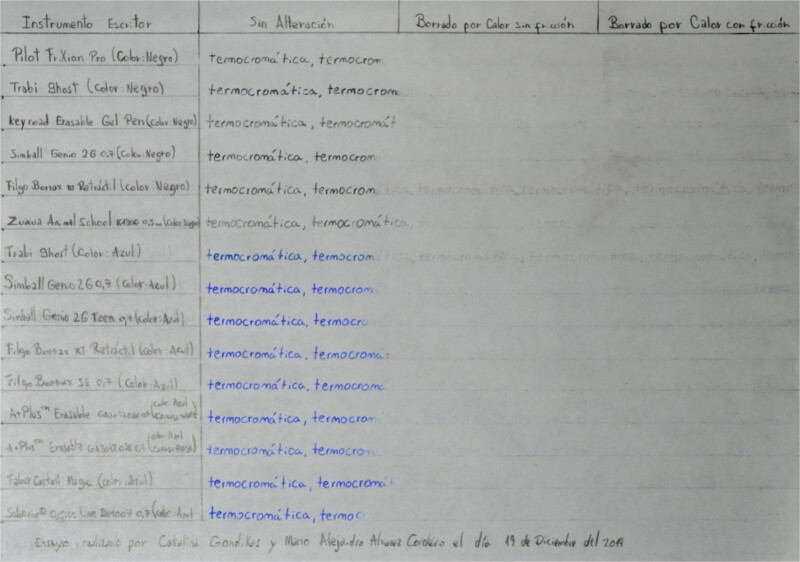 Instrumento Escritor Sin Alteración Borrado por Calor sin fricción Borrado por Calor con fricción
Pilot FriXion Pro (Color: Negro) termocromática, termocrom
Trabi Ghost (Color: Negro) termocromática, termocrom
Keyroad Erasable Gel Pen (Color: Negro) termocromática, termocromát
Simball Genio 2G 0,7 (Color: Negro) termocromática, termocrom
Filgo Borrax RT Retráctil (Color: Negro) termocromática, termocromática, termocromática, termocromática, termocromática, termo
Zuwua Animal School 0,5 (Color: Negro) termocromática, termocromática,
Trabi Ghost (Color: Azul) termocromática, termocromática, termocromática, termocromática
Simball Genio 2G 0,7 (Color: Azul) termocromática, termocrom
Simball Genio 2G Teen 0,7 (Color: Azul) termocromática, termocro
Filgo Borrax RT Retráctil (Color: Azul) termocromática, termocromá
Filgo Borrax SE 0,7 (Color: Azul) termocromática, termocromá
A+Plus™ Erasable (Color: Azul) termocromática, termocrom
A+Plus™ Erasable 0,7 (Color: Azul) termocromática, termocrom
Faber Castell Magic (Color: Azul) termocromática, termocromát
0,7 (Color: Azul termocromática, termoc
Ensayo realizado por Catalina y Mario Alejandro Alvarez Cordero el día 19 de Diciembre del 2019